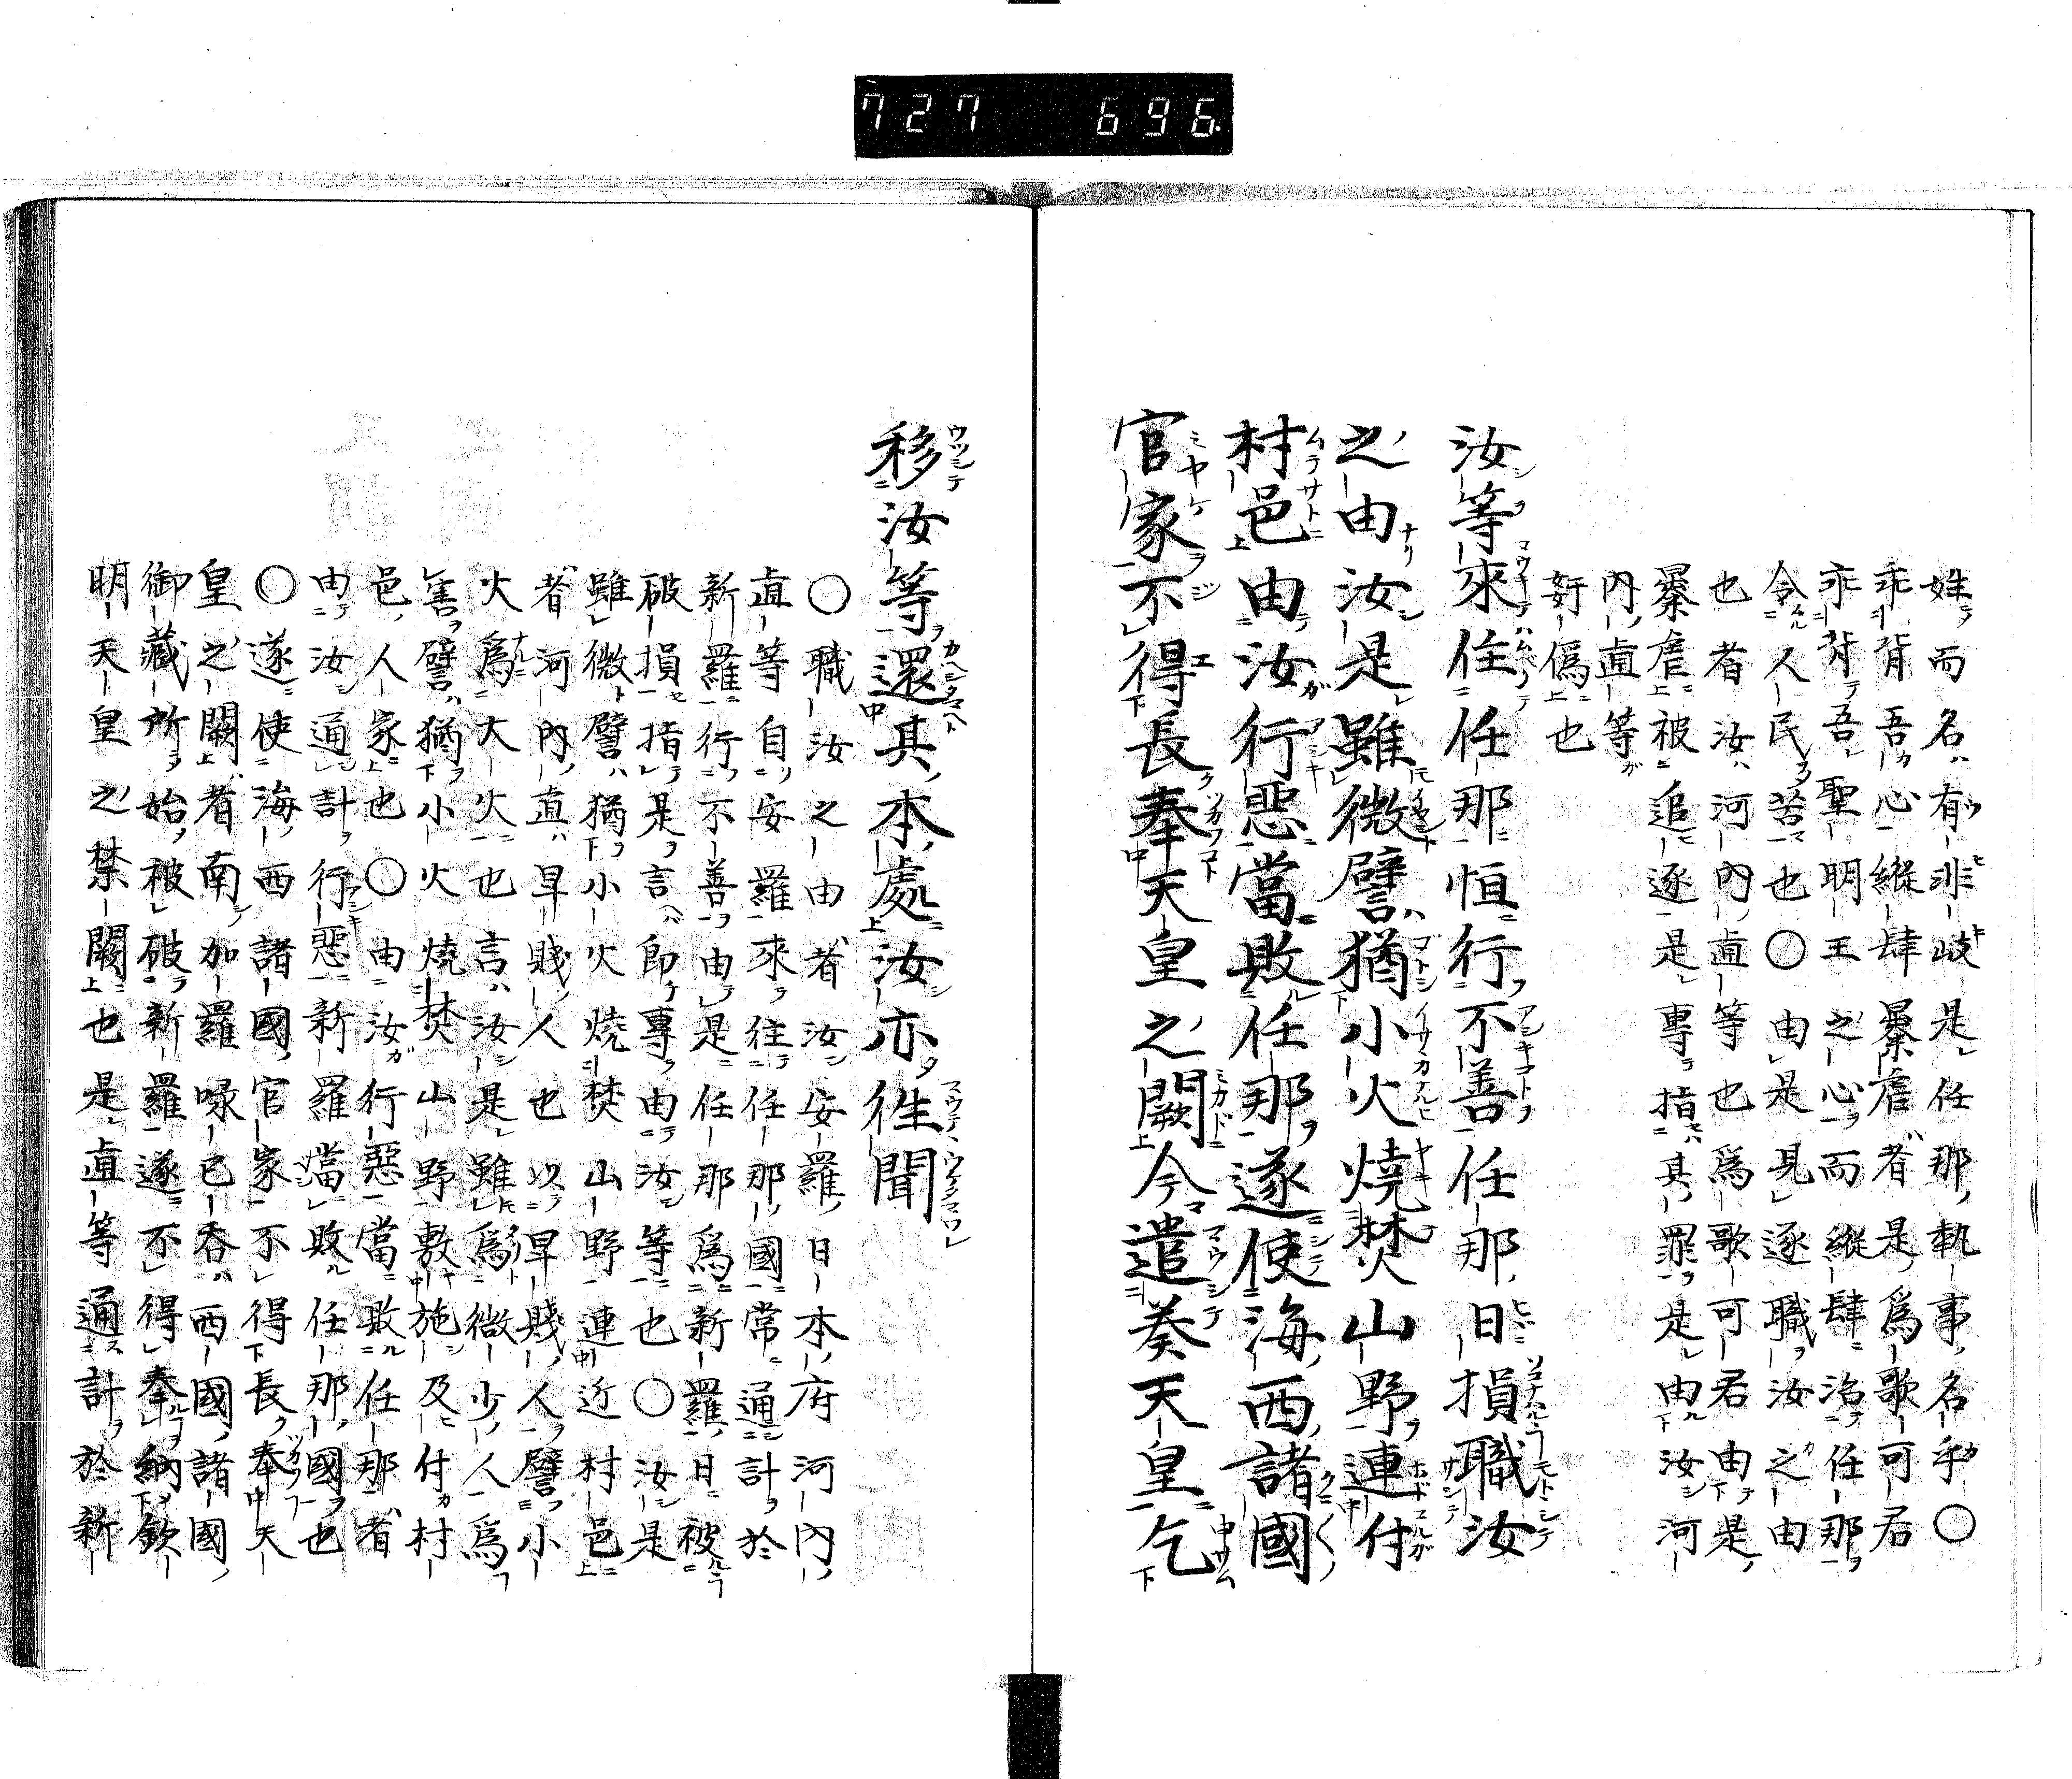 727 696.
姓而名有非岐是任那執事名乎○
乖背吾心縱肆㬥虐者是爲歌可君
乖背吾聖明王之心而縱肆治任那
令人民苦也○由是見逐職汝之由
也者汝河內直等也爲歌可君由是
㬥虐被追逐是專指其罪是由汝河
內直等
姧僞也
汝等來住任那恒行不善任那日損職汝
之由汝是雖微譬猶小火燒焚山野連付
村邑由汝行惡當敗任那遂使海西諸國
官家不得長奉天皇之闕今遣奏天皇乞
移汝等還其本處汝亦往聞
○職汝之由者汝安羅日本府河內
直等自安羅來往任那國常通計於
新羅行不善由是任那爲新羅日被
破損指是言卽專由汝等也○汝是
雖微譬猶小火燒焚山野連近村邑
者河內直卑賎人也以卑賎人譬小
火爲大火也言汝是雖爲微少人爲
害譬猶小火燒焚山野敷施及付村
邑人家也○由汝行惡當敗任那者
由汝通計行惡新羅當敗任那國也
○遂使海西諸國官家不得長奉天
皇之闕者南加羅㖨已呑西國諸國
御藏所始被破新羅遂不得奉納欽
明天皇之禁闕也是直等通計於新